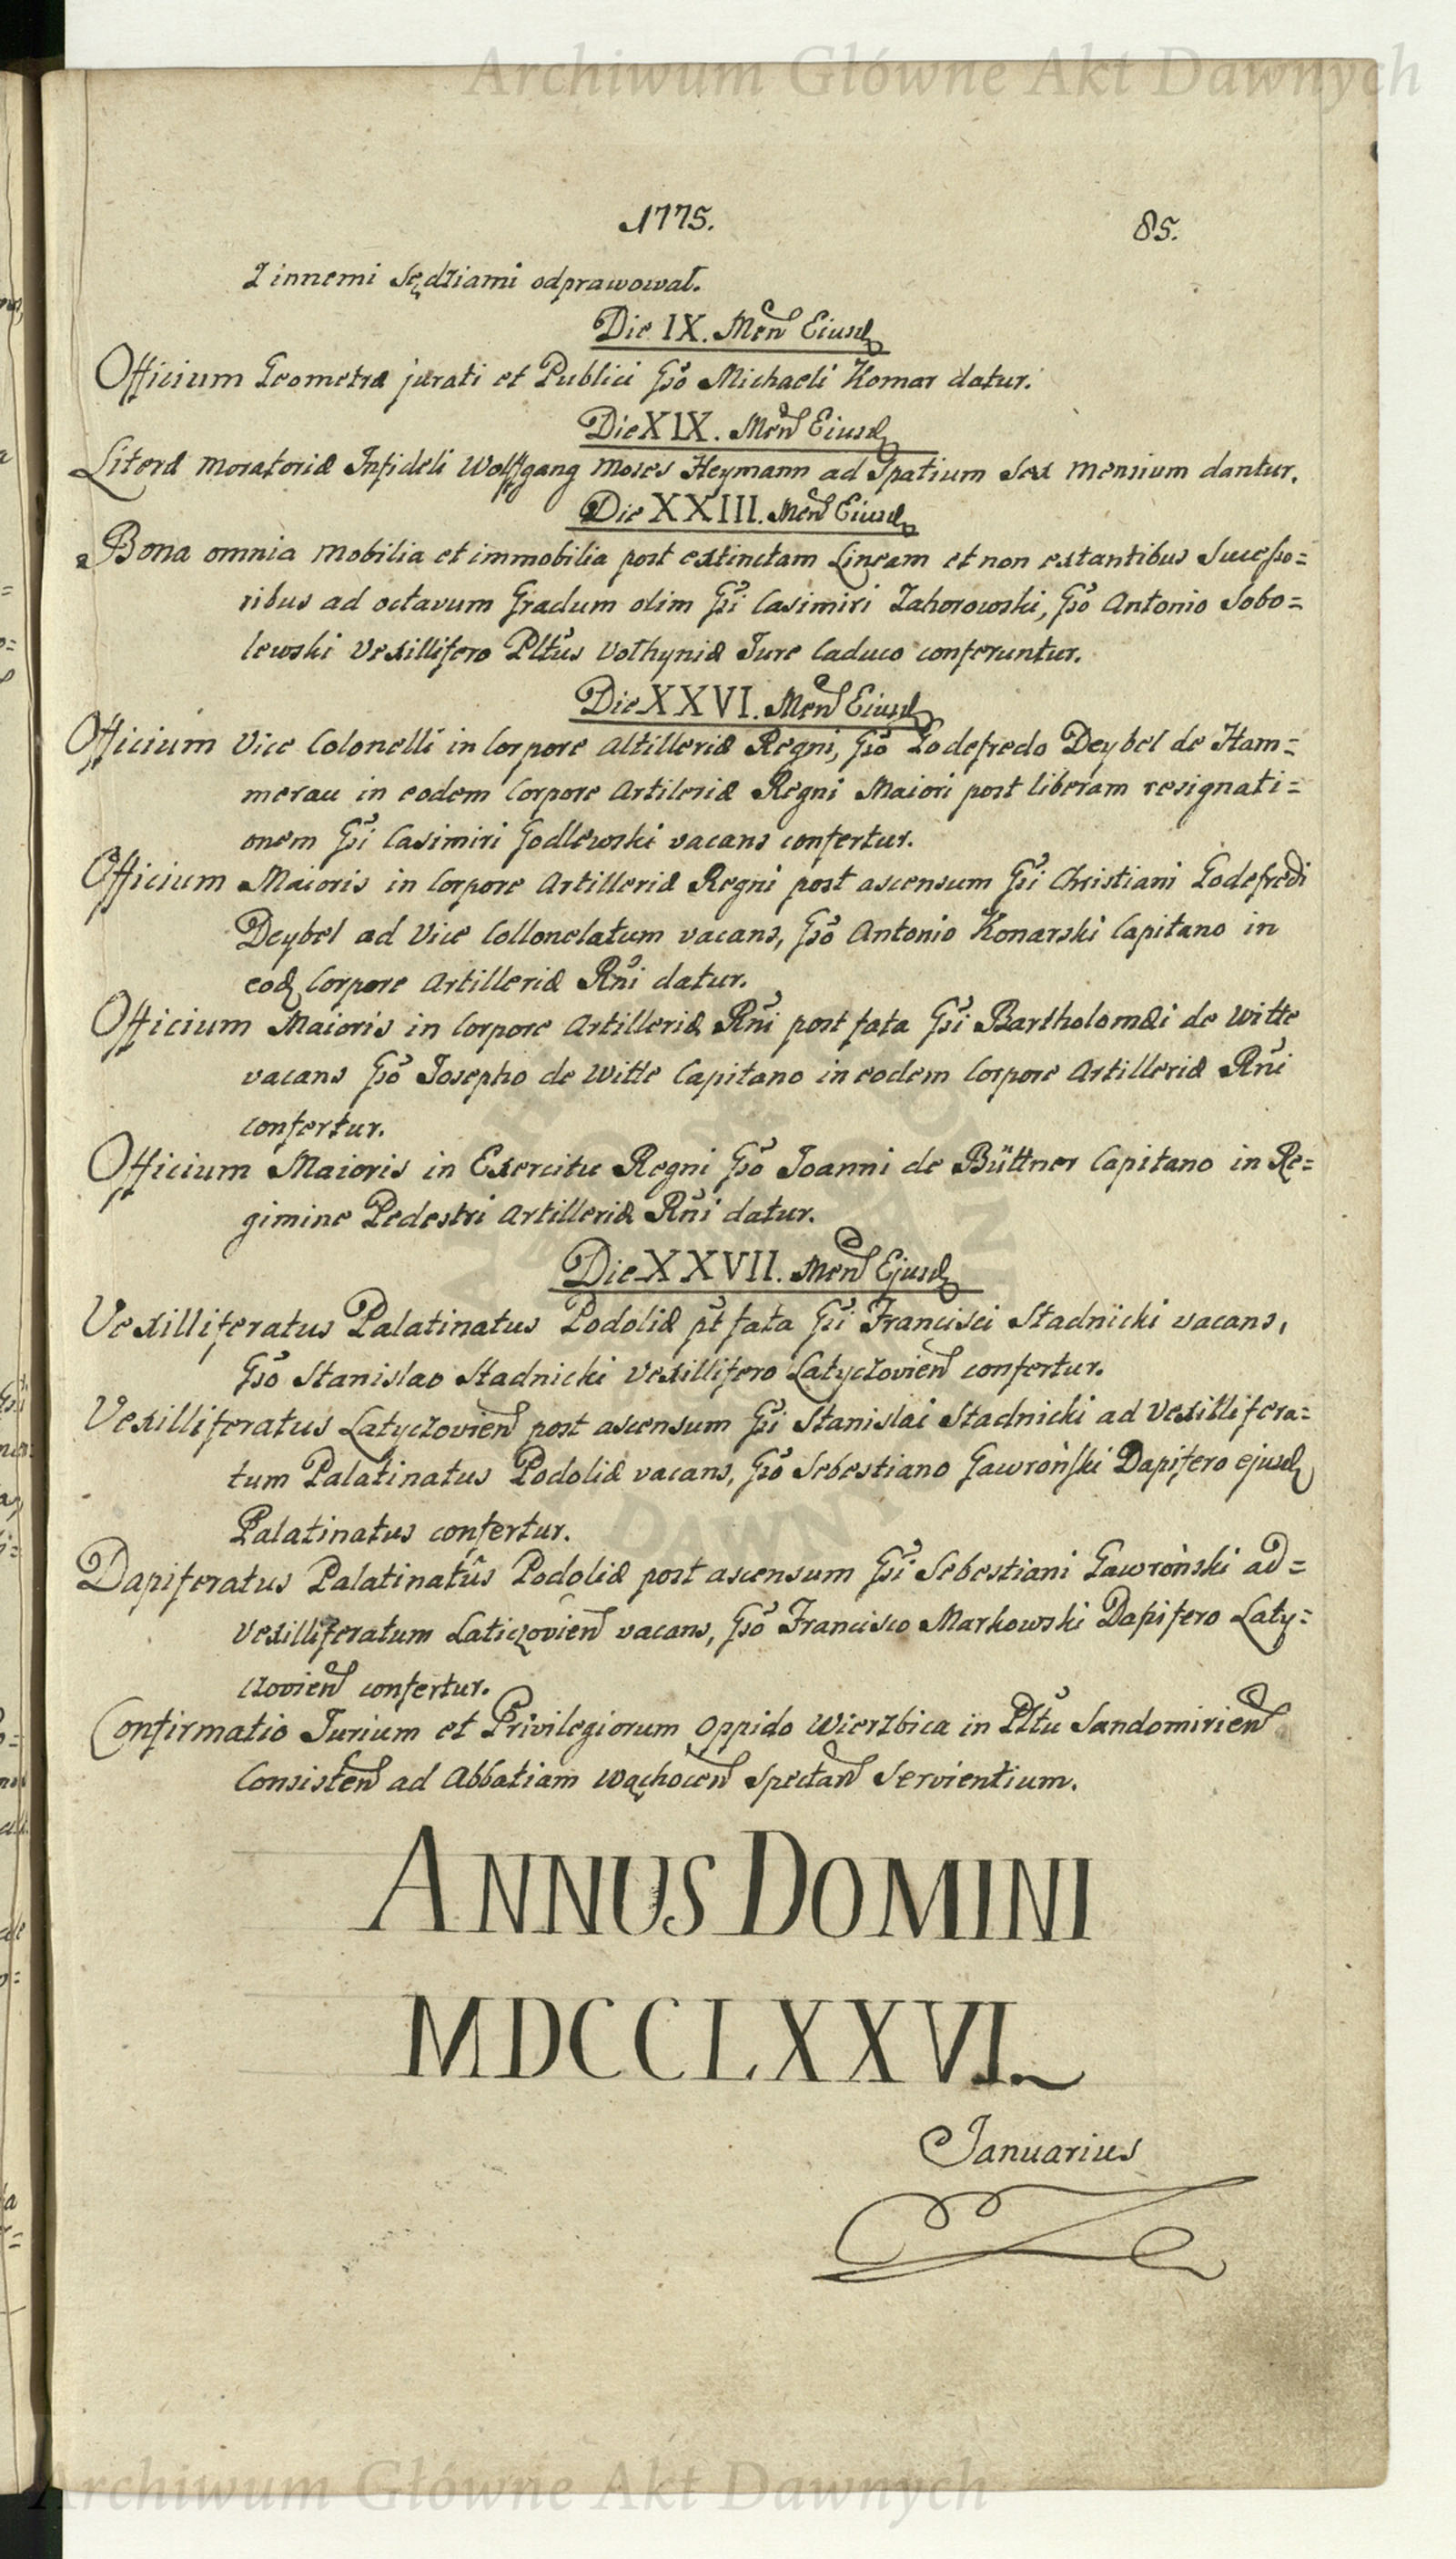 Archiwum Główne Akt Dawnych
1775. 85.
Z innemi Sędziami odprawował.
Die IX. Men Eiusd
Officium Geometræ jurati et Publici Gso Michaeli Komar datur.
Die XIX. Men Eiusd
Literæ moratoriæ Infideli Wolffgang Moses Heymann ad Spatium Sex Mensium dantur.
Die XXIII. Men Eiusd
Bona omnia mobilia et immobilia post extinctam Lineam et non extantibus Successo=
ribus ad octavum Gradum olim Gsi Casimiri Zahorowski, Gso Antonio Sobo=
lewski Vexillifero Pltus Volhyniæ Jure Caduco conferuntur.
Die XXVI. Men Eiusd
Officium Vice Colonelli in Corpore Altilleriæ Regni, Gso Godefredo Deybel de Ham=
merau in eodem Corpore Artileriæ Regni Maiori post liberam resignati=
onem Gsi Casimiri Godlewski vacans confertur.
Officium Maioris in Corpore Artilleriæ Regni post ascensum Gsi Christiani Godefredi
Deybel ad Vice Collonelatum vacans, Gso Antonio Konarski Capitano in
eod Corpore Artilleriæ Rni datur.
Officium Maioris in Corpore Artilleriæ Rni post fata Gsi Bartholomæi de Witte
vacans Gso Josepho de Witte Capitano in eodem Corpore Artilleriæ Rni
confertur.
Officium Maioris in Exercitu Regni Gso Joanni de Büttner Capitano in Re=
gimine Pedestri Artilleriæ Rni datur.
Die XXVII. Men Ejusd
Vexilliferatus Palatinatus Podoliæ pt fata Gsi Francisci Stadnicki vacans,
Gso Stanislao Stadnicki Vexillifero Latyczovien confertur.
Vexilliferatus Latyczovien post ascensum Gsi Stanislai Stadnicki ad Vexillifera=
tum Palatinatus Podoliæ vacans, Gso Sebestiano Gawroński Dapifero ejusd
Palatinatus confertur.
Dapiferatus Palatinatûs Podoliæ post ascensum Gsi Sebestiani Gawroński ad=
Vexilliferatum Laticzovien vacans, Gso Francisco Markowski Dapifero Laty=
czovien confertur.
Confirmatio Jurium et Privilegiorum Oppido Wierzbica in Pltu Sandomirien
Consisten ad Abbatiam Wąchocen Spectan Servientium.
ANNUS DOMINI
MDCCLXXVI.
Januarius
Archiwum Główne Akt Dawnych